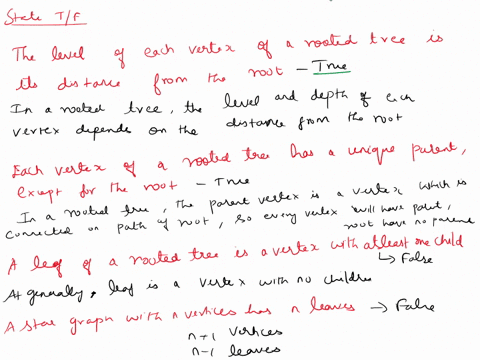 State T/F
The level of each vertex of a rooted tree is
its distance from the root - True
In a rooted tree, the level and depth of each
vertex depends on the distance from the root
Each vertex of a rooted tree has a unique parent,
except for the root - True
In a rooted tree, the parent vertex is a vertex which is
connected on path of root, so every vertex will have parent,
root have no parent
A leaf of a rooted tree is a vertex with atleast one child
↳ False
At generally, leaf is a vertex with no children
A star graph with n vertices has n leaves → False
n+1 vertices
n-1 leaves